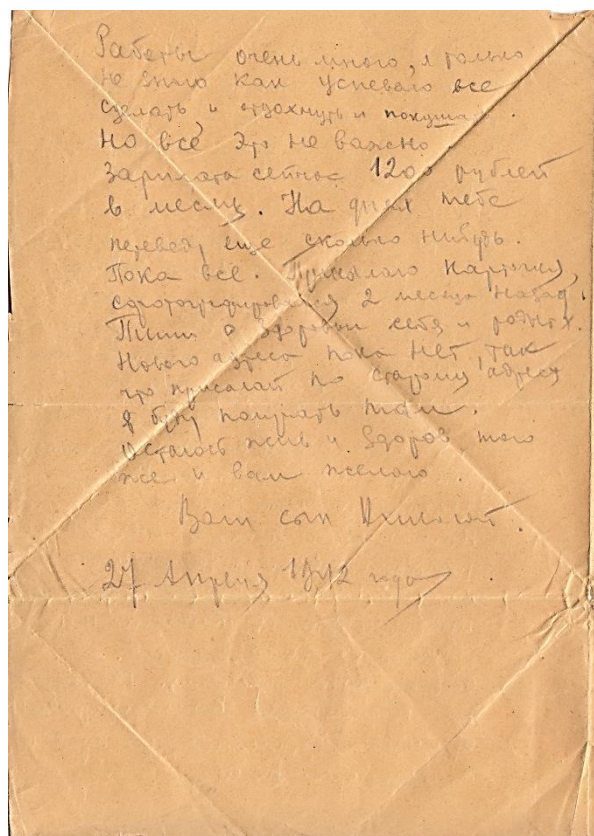 Работы очень много, я только
не знаю как успеваю все
сделать и отдохнуть и покушать.
Но всё это не важно.
Зарплата сейчас 1200 рублей
в месяц. На днях тебе
переведу еще сколько нибудь.
Пока все. Присылаю карточку,
сфотографировался 2 месяца назад.
Пиши о здоровьи себя и родных.
Нового адреса пока нет, так
что присылай по старому адресу
я буду получать там.
Остаюсь жив и здоров того
же и вам желаю.
Ваш сын
27 Апреля 1942 года